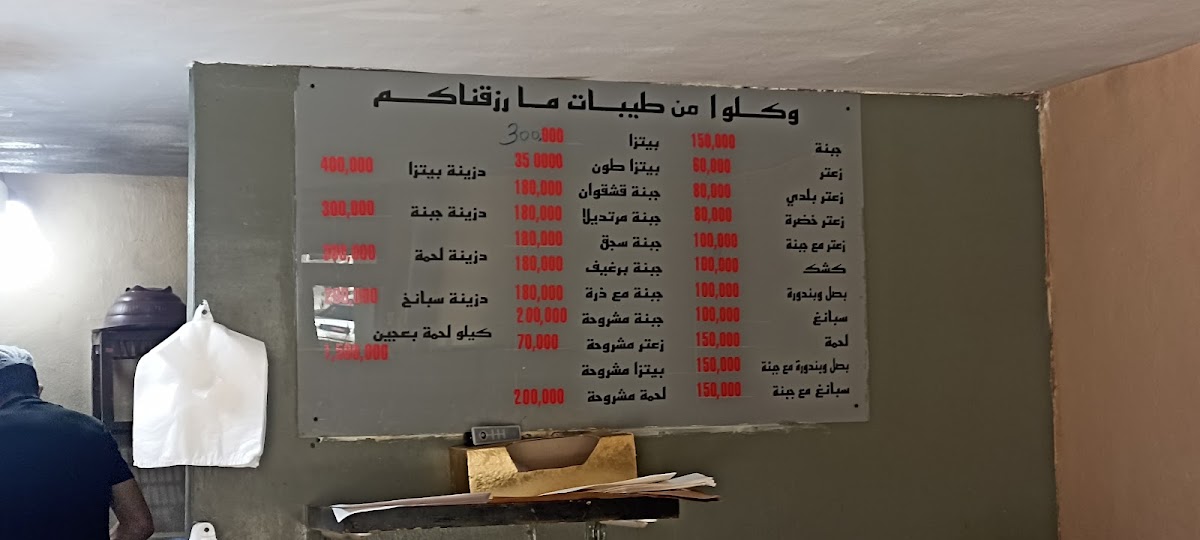 وكلوا من طيبات ما رزقناكم
جبنة 150,000
زعتر 60,000
زعتر بلدي 80,000
زعتر خضرة 80,000
زعتر مع جبنة 100,000
كشك 100,000
بصل وبندورة 100,000
سبانغ 100,000
لحمة 150,000
بصل وبندورة مع جبنة 150,000
سبانغ مع جبنة 150,000
بيتزا 300.000
بيتزا طون 35 0000
جبنة قشقوان 180,000
جبنة مرتديلا 180,000
جبنة سجق 180,000
جبنة برغيف 180,000
جبنة مع ذرة 180,000
جبنة مشروحة 200,000
زعتر مشروحة 70,000
بيتزا مشروحة
لحمة مشروحة 200,000
دزينة بيتزا 400,000
دزينة جبنة 300,000
دزينة لحمة
دزينة سبانخ
كيلو لحمة بعجين